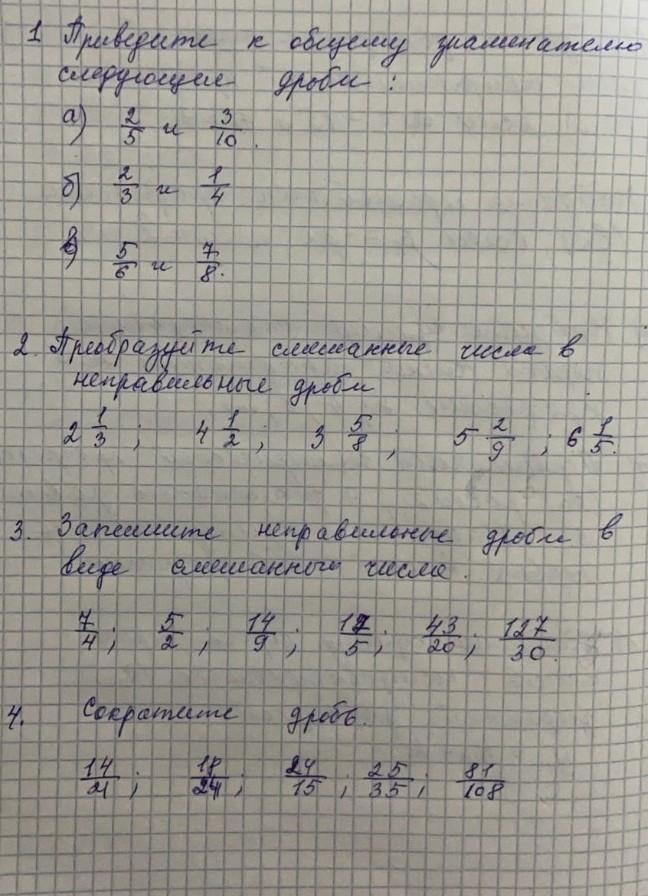 1. Приведите к общему знаменателю
следующие дроби :
а) 2/5 и 3/10.
б) 2/3 и 1/4
в) 5/6 и 7/8.
2. Преобразуйте смешанные числа в
неправильные дроби
2 1/3 ; 4 1/2 ; 3 5/8 ; 5 2/9 ; 6 1/5.
3. Запишите неправильные дроби в
виде смешанных числа.
7/4 ; 5/2 ; 14/9 ; 17/5 ; 43/20 ; 127/30.
4. Сократите дробь.
14/21 ; 18/24 ; 24/15 ; 25/35 ; 81/108